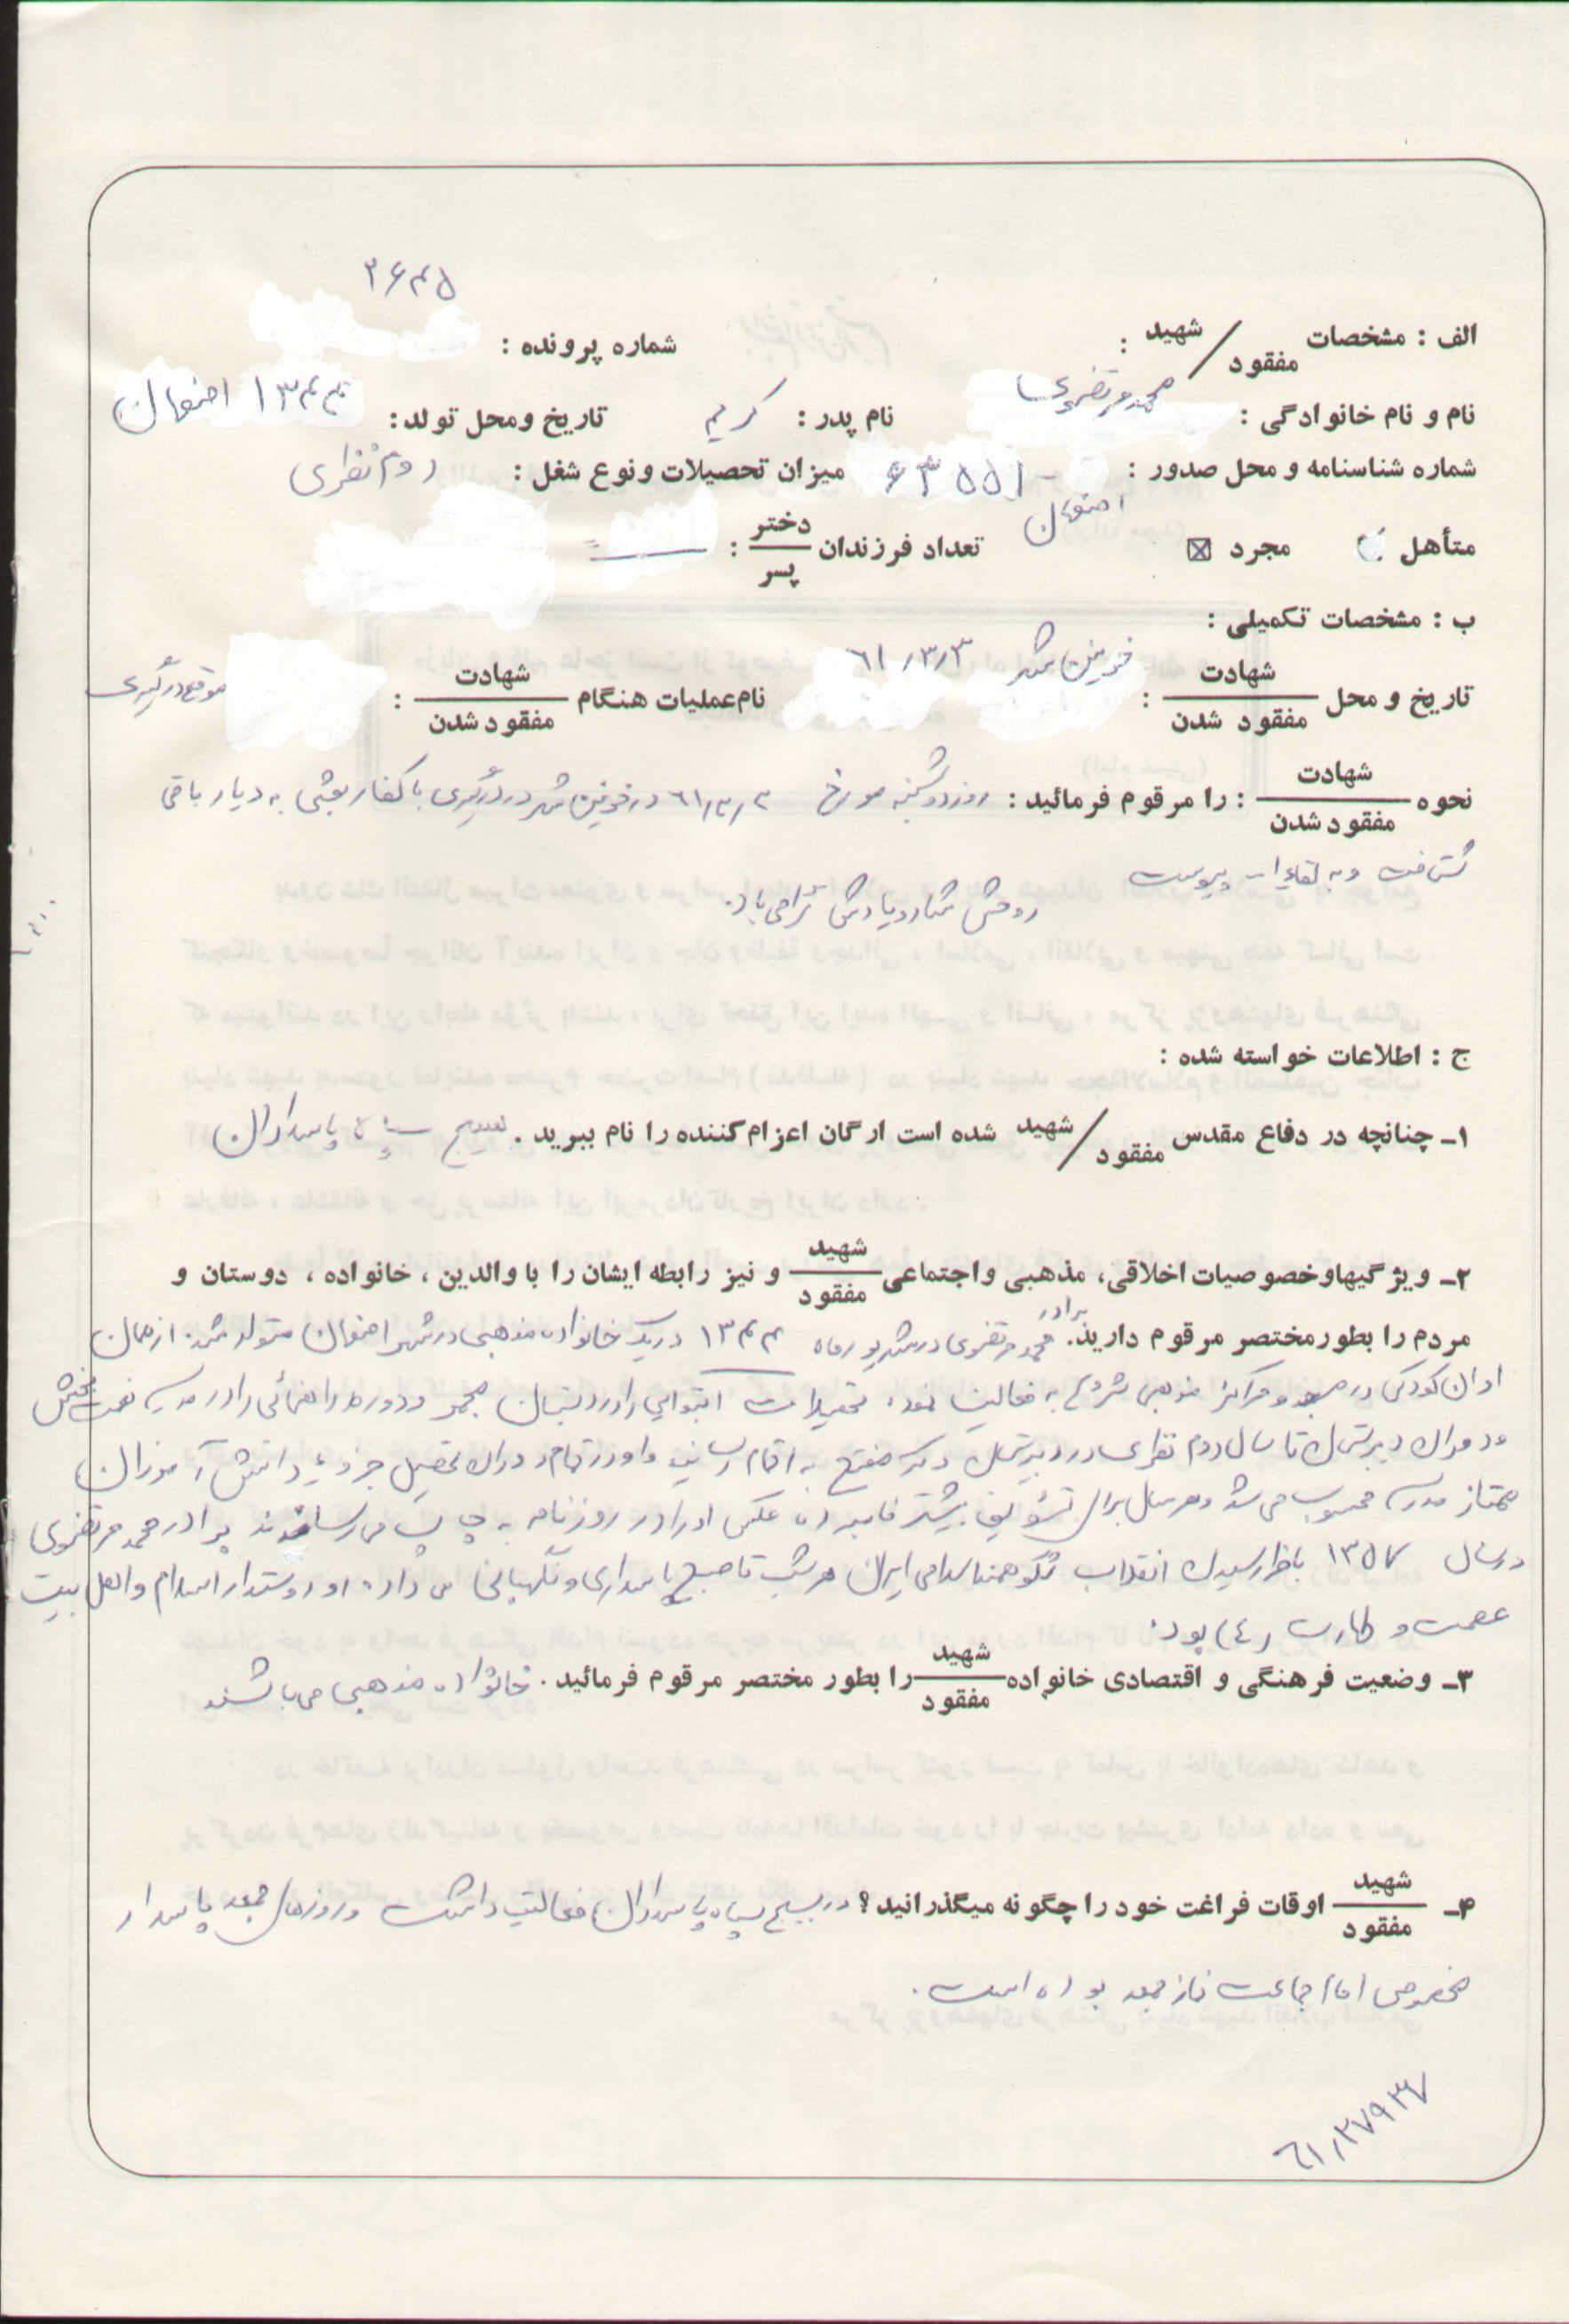 ۳۶۴۵
الف : مشخصات شهید / مفقود : شماره پرونده :
نام و نام خانوادگی : محمد مرتضوی نام پدر : کریم تاریخ ومحل تولد : ۱۳۴۴ اصفهان
شماره شناسنامه و محل صدور : ۶۳۵۵۱ - میزان تحصیلات ونوع شغل : دوم نظری
اصفهان
متأهل مجرد ☒ تعداد فرزندان دختر / پسر : ــــ
ب : مشخصات تکمیلی :
تاریخ و محل شهادت / مفقود شدن : خونین شهر ۶۱/۳/۳ نام عملیات هنگام شهادت / مفقود شدن : موقع درگیری
نحوه شهادت / مفقود شدن : را مرقوم فرمائید : روز دوشنبه مورخ ۶۱/۳/۳ در خونین شهر در درگیری با کفار بعثی به دیار باقی
شتافت و به لقاء ا... پیوست
روحش شاد و یادش گرامی باد.
ج : اطلاعات خواسته شده :
۱ـ چنانچه در دفاع مقدس شهید / مفقود شده است ارگان اعزام کننده را نام ببرید . بسیج سپاه پاسداران
۲ـ ویژگیهاوخصوصیات اخلاقی، مذهبی واجتماعی شهید / مفقود و نیز رابطه ایشان را با والدین ، خانواده ، دوستان و
مردم را بطورمختصر مرقوم دارید. برادر محمد مرتضوی در شهریور ماه ۱۳۴۴ در یک خانواده مذهبی در شهر اصفهان متولد شد. از همان
اوان کودکی در و مراکز مذهبی شروع به فعالیت نمود. تحصیلات ابتدایی را در دبستان و دوره راهنمائی را در مدرسه نعمت بخش
و دوران دبیرستان تا سال دوم نظری در دبیرستان به اتمام رسانید و او در تمام دوران تحصیل جزء دانش آموزان
ممتاز مدرسه محسوب می شد و هر سال برای تشویق بیشتر نامبرده عکس او را در روزنامه به چاپ می رساندند برادر محمد مرتضوی
در سال ۱۳۵۷ با فرا رسیدن انقلاب شکوهمند اسلامی ایران هر شب تا صبح پاسداری و نگهبانی می داد. او دوستدار اسلام و اهل بیت
عصمت و طهارت (ع) بود.
۳ـ وضعیت فرهنگی و اقتصادی خانواده شهید / مفقود را بطور مختصر مرقوم فرمائید . خانواده مذهبی می باشند
۴ـ شهید / مفقود اوقات فراغت خود را چگونه میگذرانید ؟ در بسیج سپاه پاسداران فعالیت داشت و روزهای جمعه پاسدار
مخصوص امام جماعت نماز جمعه بوده است .